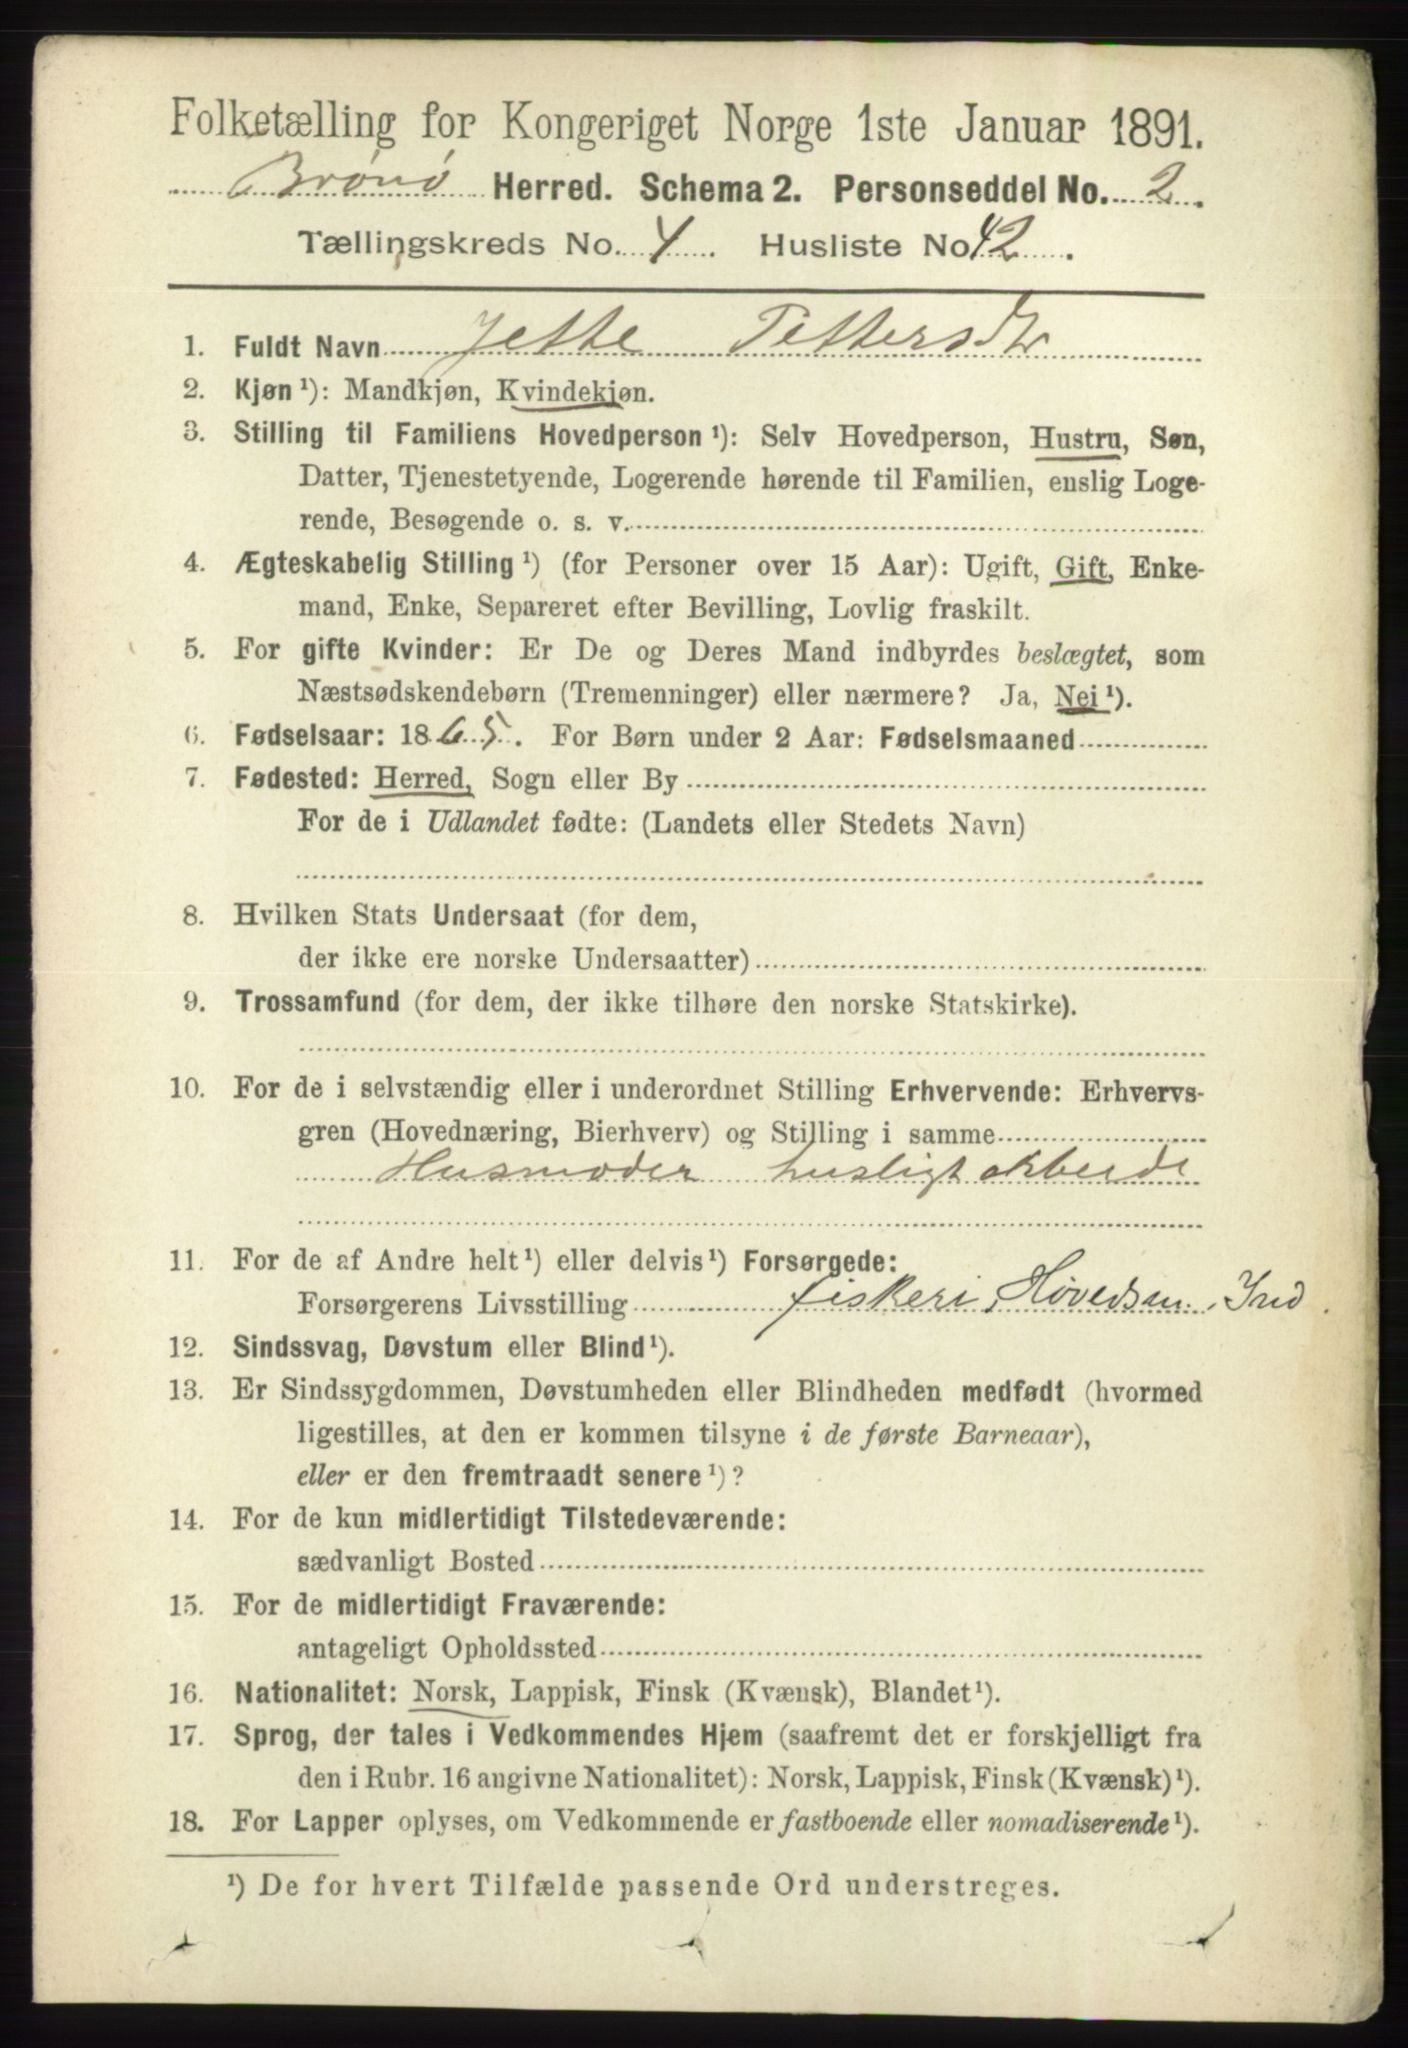 Folketælling for Kongeriget Norge 1ste Januar 1891.
Brønø Herred. Schema 2. Personseddel No. 2.
Tællingskreds No. 4. Husliste No. 42.
1. Fuldt Navn Jette Pettersdtr
2. Kjøn ¹): Mandkjøn, Kvindekjøn.
3. Stilling til Familiens Hovedperson ¹): Selv Hovedperson, Hustru, Søn,
Datter, Tjenestetyende, Logerende hørende til Familien, enslig Loge-
rende, Besøgende o. s. v.
4. Ægteskabelig Stilling ¹) (for Personer over 15 Aar): Ugift, Gift, Enke-
mand, Enke, Separeret efter Bevilling, Lovlig fraskilt.
5. For gifte Kvinder: Er De og Deres Mand indbyrdes beslægtet, som
Næstsødskendebørn (Tremenninger) eller nærmere? Ja, Nei ¹).
6. Fødselsaar: 1865. For Børn under 2 Aar: Fødselsmaaned
7. Fødested: Herred, Sogn eller By
For de i Udlandet fødte: (Landets eller Stedets Navn)
8. Hvilken Stats Undersaat (for dem,
der ikke ere norske Undersaatter)
9. Trossamfund (for dem, der ikke tilhøre den norske Statskirke).
10. For de i selvstændig eller i underordnet Stilling Erhvervende: Erhvervs-
gren (Hovednæring, Bierhverv) og Stilling i samme
Husmoder husligt arbeide
11. For de af Andre helt ¹) eller delvis ¹) Forsørgede:
Forsørgerens Livsstilling fiskeri,
12. Sindssvag, Døvstum eller Blind ¹).
13. Er Sindssygdommen, Døvstumheden eller Blindheden medfødt (hvormed
ligestilles, at den er kommen tilsyne i de første Barneaar),
eller er den fremtraadt senere ¹)?
14. For de kun midlertidigt Tilstedeværende:
sædvanligt Bosted
15. For de midlertidigt Fraværende:
antageligt Opholdssted
16. Nationalitet: Norsk, Lappisk, Finsk (Kvænsk), Blandet ¹).
17. Sprog, der tales i Vedkommendes Hjem (saafremt det er forskjelligt fra
den i Rubr. 16 angivne Nationalitet): Norsk, Lappisk, Finsk (Kvænsk) ¹).
18. For Lapper oplyses, om Vedkommende er fastboende eller nomadiserende ¹).
¹) De for hvert Tilfælde passende Ord understreges.